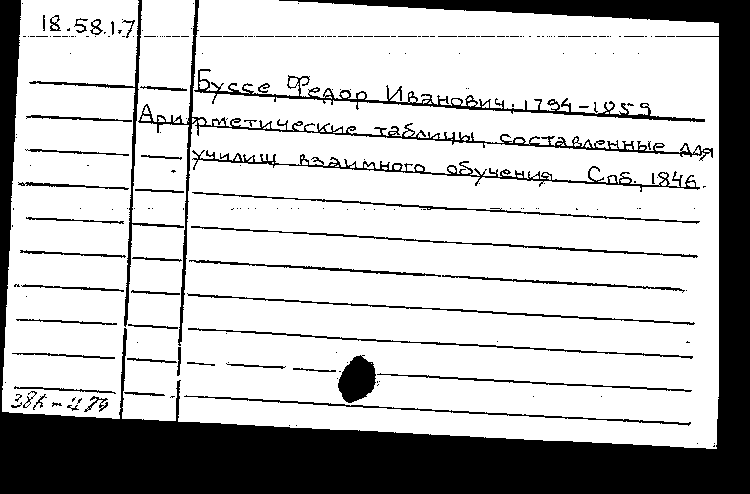 18.58.1.7
Буссе, Федор Иванович, 1794-1859
Арифметические таблицы, составленные для
училищ взаимного обучения. Спб., 1846.
38к-489